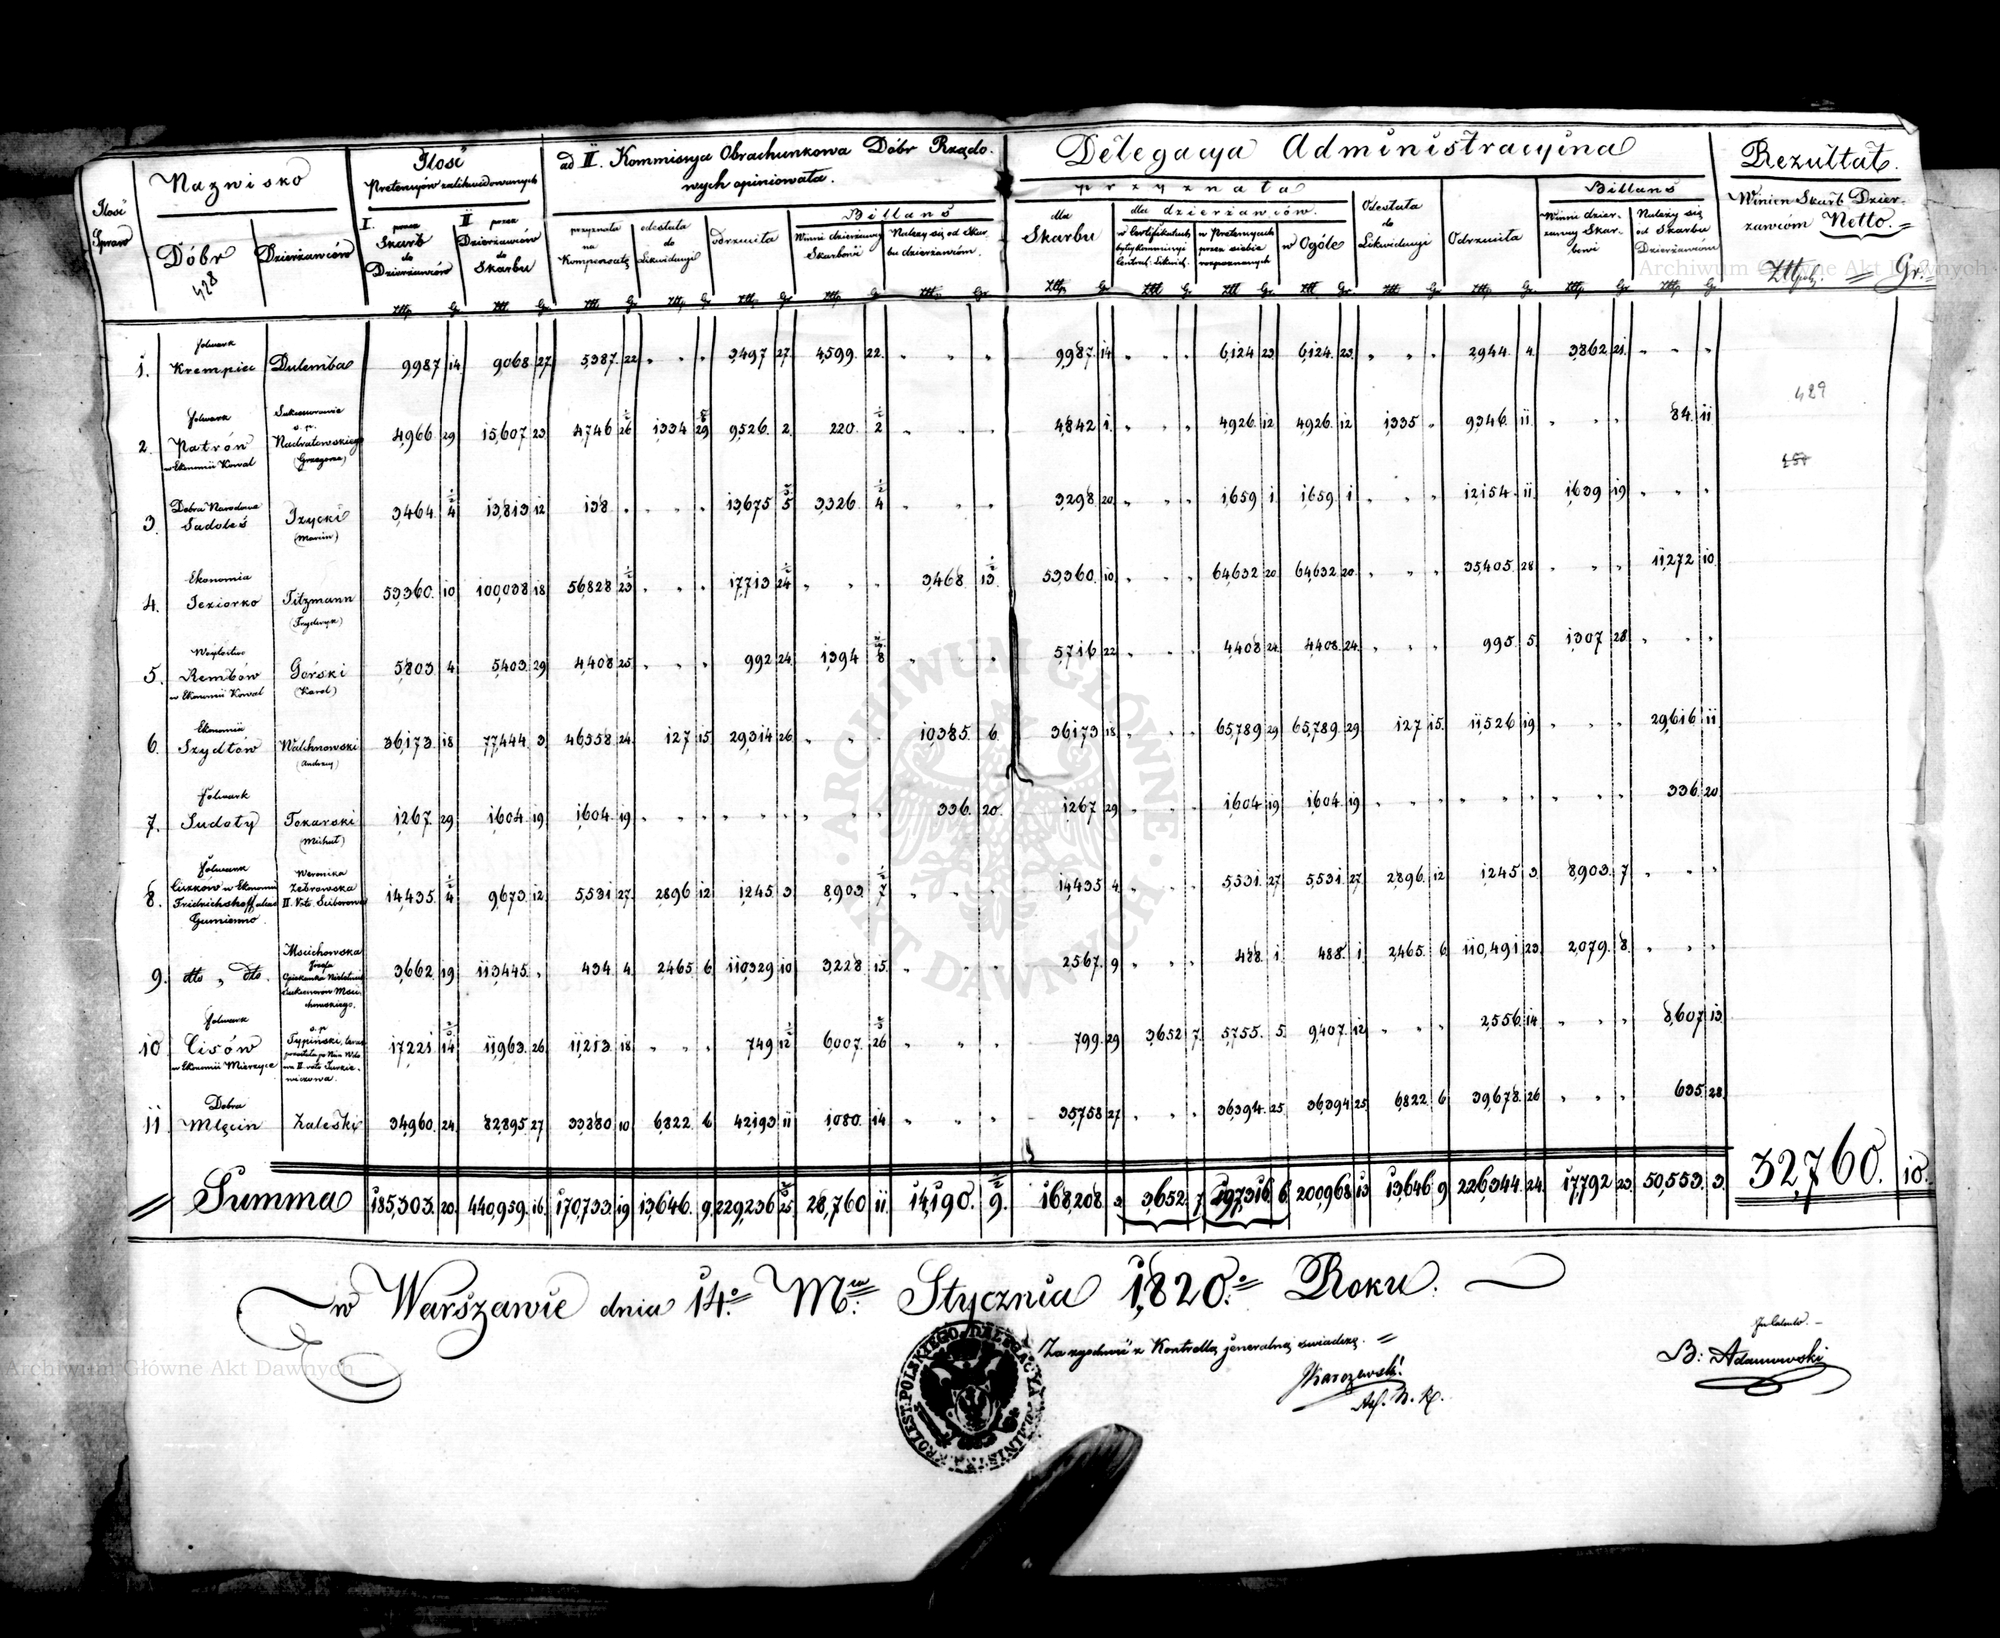 Ilość Spraw
Nazwisko
Dóbr
Dzierżawców
428
Ilość
Pretensyów zalikwidowanych
I. przez Skarb do Dzierżawców
II przez Dzierżawców do Skarbu
ad II. Kommissya Obrachunkowa Dóbr Rządo-
wych opiniowała.
przyznała na Kompensatę
odesłała do Likwidacyi
odrzuciła
Billans
Winni dzierżawcy Skarbowi
Należy się od Skarbu dzierżawcóm.
Delegacya Administracyina
przyznała
dla Skarbu
dla dzierżawców.
w Certifikatach byłey Kommissyi Central: Likwid:
w Pretensyach przez siebie rozpoznanych
w Ogóle
Odesłała do Likwidacyi
Odrzuciła
Billans
Winni dzierżawcy Skarbowi
Należy się od Skarbu Dzierżawcóm
Rezultat.
Winien Skarb Dzier-
żawcóm Netto.
Złtpols: Gr.
1. Folwark Krempiec Dulemba 9987 14 9068 27 5387. 22 " " " 3497 27 4,599. 22. " " " 9987. 14 " " " 6,124 23 6,124. 23. " " " 2,944. 4. 3,862 21. " " "
2. Folwark Patrów w Ekonomii Kowal Sukcessorowie ś. p. Nadratowskiego (Grzegorza) 4,966 29 15,607 23 4,746 26 1/2 1334 29 9,526. 2. 220. 2 1/2 " " " 4,842 1. " " " 4,926. 12 4,926. 12 1,335 " 9,346. 11. " " " 84. 11
429
3. Dobra Narodowe Sadoleś Izycki (Marcin) 3,464. 4 1/2 13,813 12 138 " " " " 13,675 5 3,326 4 1/2 " " " 3,298 20 " " " 1,659 1 1,659. 1 " " " 12,154. 11. 1,639 19 " " "
4. Ekonomia Jeziorko Titzmann (Fryderyk) 53,360. 10 100,038 18 56,828 23 1/2 " " " 17,713 24 1/2 " " " 3,468 13 53,360. 10 " " " 64,632 20 64,632 20. " " " 35,405. 28 " " " 11,272 10.
5. Wóytostwo Rembów w Ekonomii Kowal Górski (Karol) 5,803 4. 5,403. 29 4,408 25 " " " 992 24. 1,394 8 " " " 5,716 22 " " " 4,408 24 4,408. 24. " " " 995. 5 1,307 28 " " "
6. Ekonomia Szydłow Walchnowski (Andrzey) 36,173. 18 77,444 3 46,358 24. 127 15 29,314 26 " " " 10,385. 6 36173 18 " " " 65,789 29 65,789. 29 127 15. 11,526 19 " " " 29,616 11
7. Folwark Sudoły Tokarski (Michał) 1,267. 29 1,604. 19 1,604. 19 " " " " " " " " " 336. 20. 1,267 29 " " " 1,604 19 1,604. 19 " " " " " " " " " 336. 20
8. Folwark Ciszków w Ekonomii Fridrichshoff alias Gumienno. Weronika Zebrowska II. Voto Sciborowa 14,435. 4 1/2 9,673. 12 5,531 27. 2896 12 1,245. 3 8,903. 7 1/2 " " " 14,435 4 " " " 5,531. 27 5,531. 27 2,896. 12 1,245 3. 8,903. 7 " " "
9. dto " dto. Mscichowska Józefa Opiekunka Nieletnich Sukcessorów Msci- chowskiego. 3,662 19 113,445. " 434 4. 2,465. 6 110,329 10 3,228 15. " " " 2,567. 9 " " " 488. 1 488. 1 2,465. 6 110,491 23. 2,079. 8. " " "
10. Folwark Cisów w Ekonomii Mierzyce ś. p. Typiński, teraz 17,221 14 11,963. 26 11,213. 18 " " " 749 12 1/2 6,007. 26 " " " 799. 29 3,652 7. 5,755. 5. 9,407. 12 " " " 2,556. 14 " " " 8,607 13
11 Dobra Młęcin Zaleski 34,960. 24. 82,895. 27 33,880 10 6,822. 6 42,193 11 1,080. 14 " " " 35,758 27 " " " 36,394. 25. 36,394 25 6,822 6 39,678. 26 " " " 635. 28.
Summa 185,303. 20. 440,959. 16. 170,733. 19 13,646. 9. 229,236 25 28,760 11 14,190. 9. 168,208. 2 3,652. 7. 197,316 6 200,968. 13 13,646 9. 226,344. 24. 17,792 23. 50,553. 3. 32,760. 10.
w Warszawie dnia 14.° Mca Stycznia 1,820.° Roku.
Za zgodność z Kontrollą jeneralną świadczę.
B: Adamowski
KROLEST: POLSKIEGO DELEGACYA ADMINISTRA
ARCHIWUM GŁÓWNE AKT DAWNYCH
Archiwum Główne Akt Dawnych
Archiwum Główne Akt Dawnych